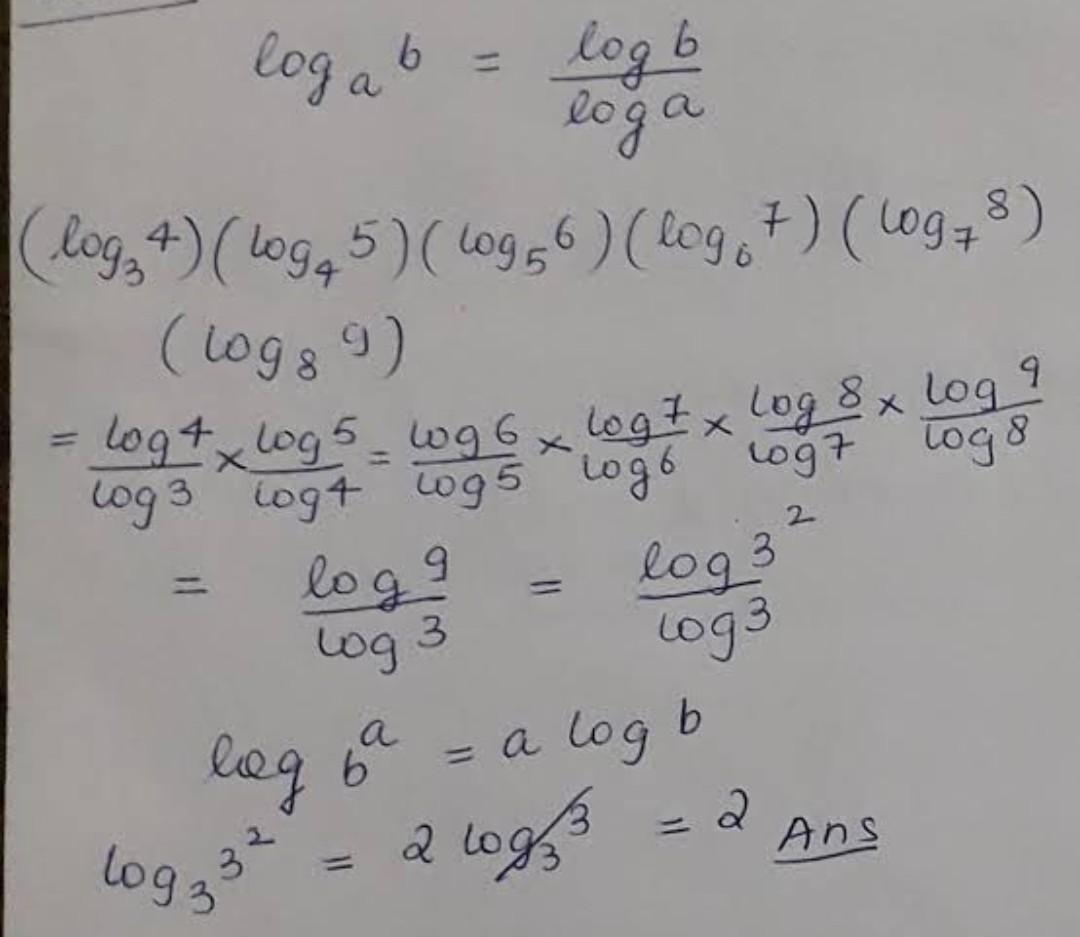 logₐ b = log b / log a
(log₃ 4)(log₄ 5)(log₅ 6)(log₆ 7)(log₇ 8)
(log₈ 9)
= log 4 / log 3 × log 5 / log 4 = log 6 / log 5 × log 7 / log 6 × log 8 / log 7 × log 9 / log 8
= log 9 / log 3 = log 3² / log 3
log bᵃ = a log b
log₃ 3² = 2 log₃ 3 = 2 Ans